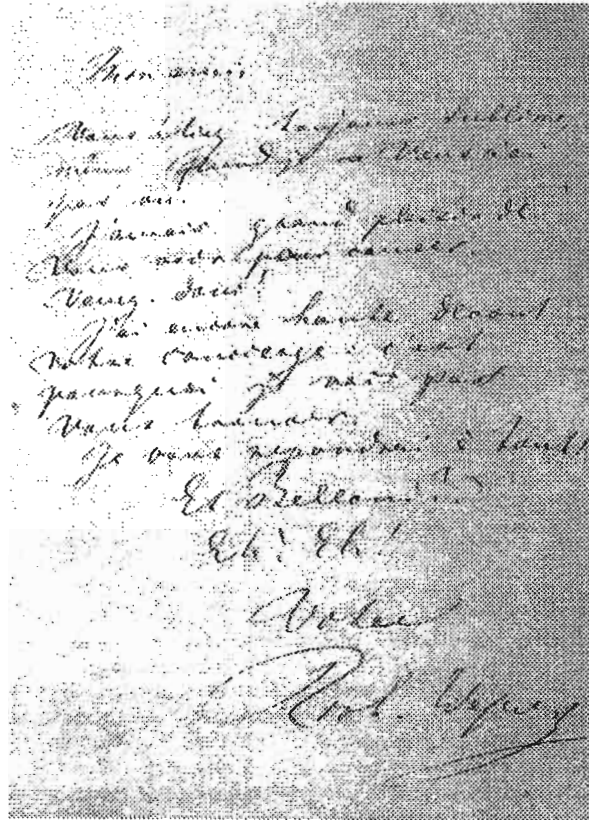 Mon ami,
Vous étiez toujours sublime,
même quand je ne vous ai
pas eu.
J'aurais grand plaisir de
vous voir pour causer.
Venez donc!
J'ai encore honte devant
votre concierge: c'est
pourquoi je vais pas
vous trouver.
Je vous répondrai à tout!
Et
Eh! Eh!
Votre
Rich. Wagner